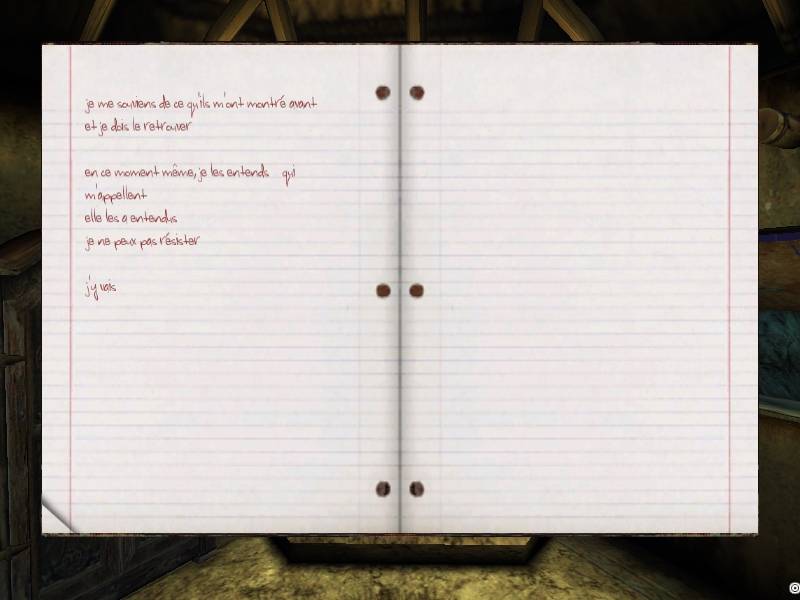 je me souviens de ce qu'ils m'ont montré avant
et je dois le retrouver
en ce moment même, je les entends qui
m'appellent
elle les a entendus
je ne peux pas résister
j'y vais